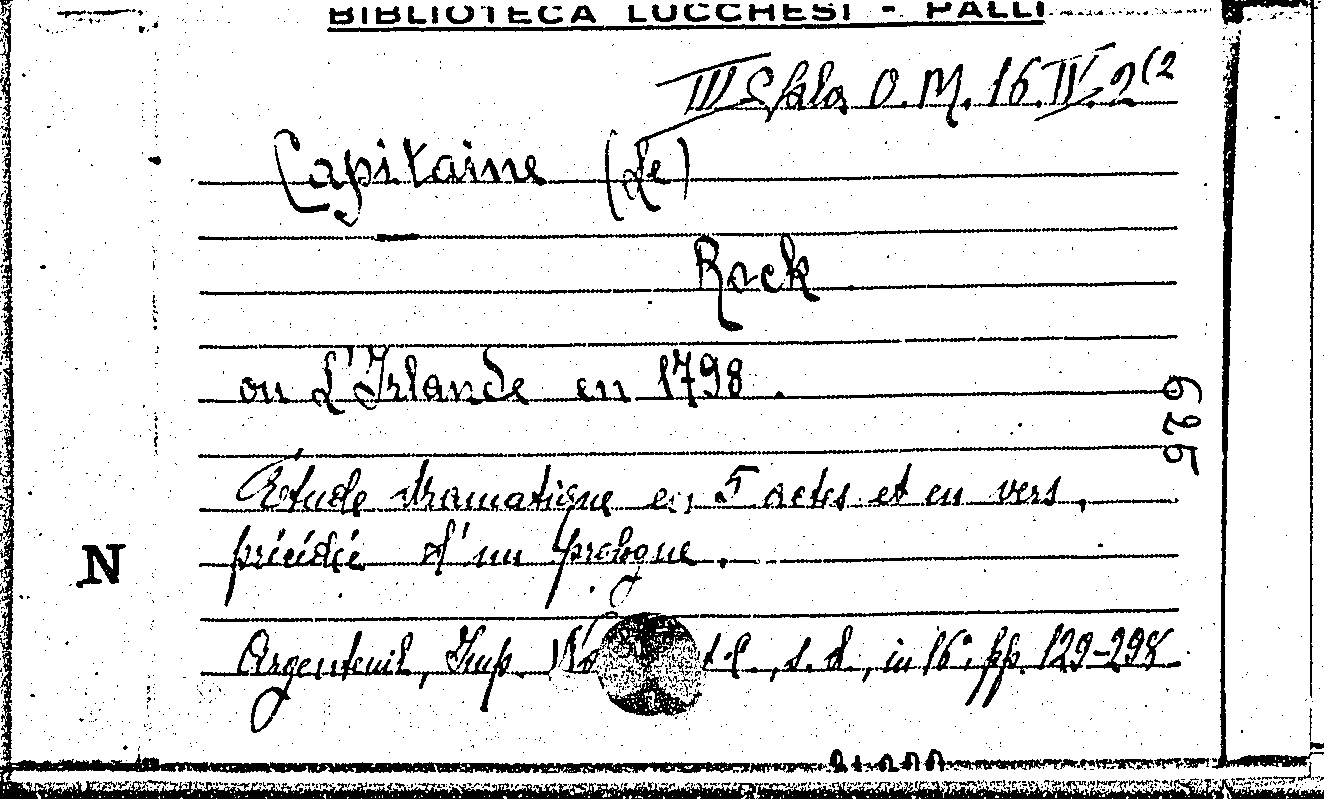 BIBLIOTECA LUCCHESI - PALLI
III Sala O. M. 16. IV. 2(2
Capitaine (Le)
Rock
ou L'Irlande en 1798.
625
Étude dramatique en 5 actes et en vers,
précédée d'un prologue.
N
Argenteuil, Imp. s. d., in 16°, pp. 129-298